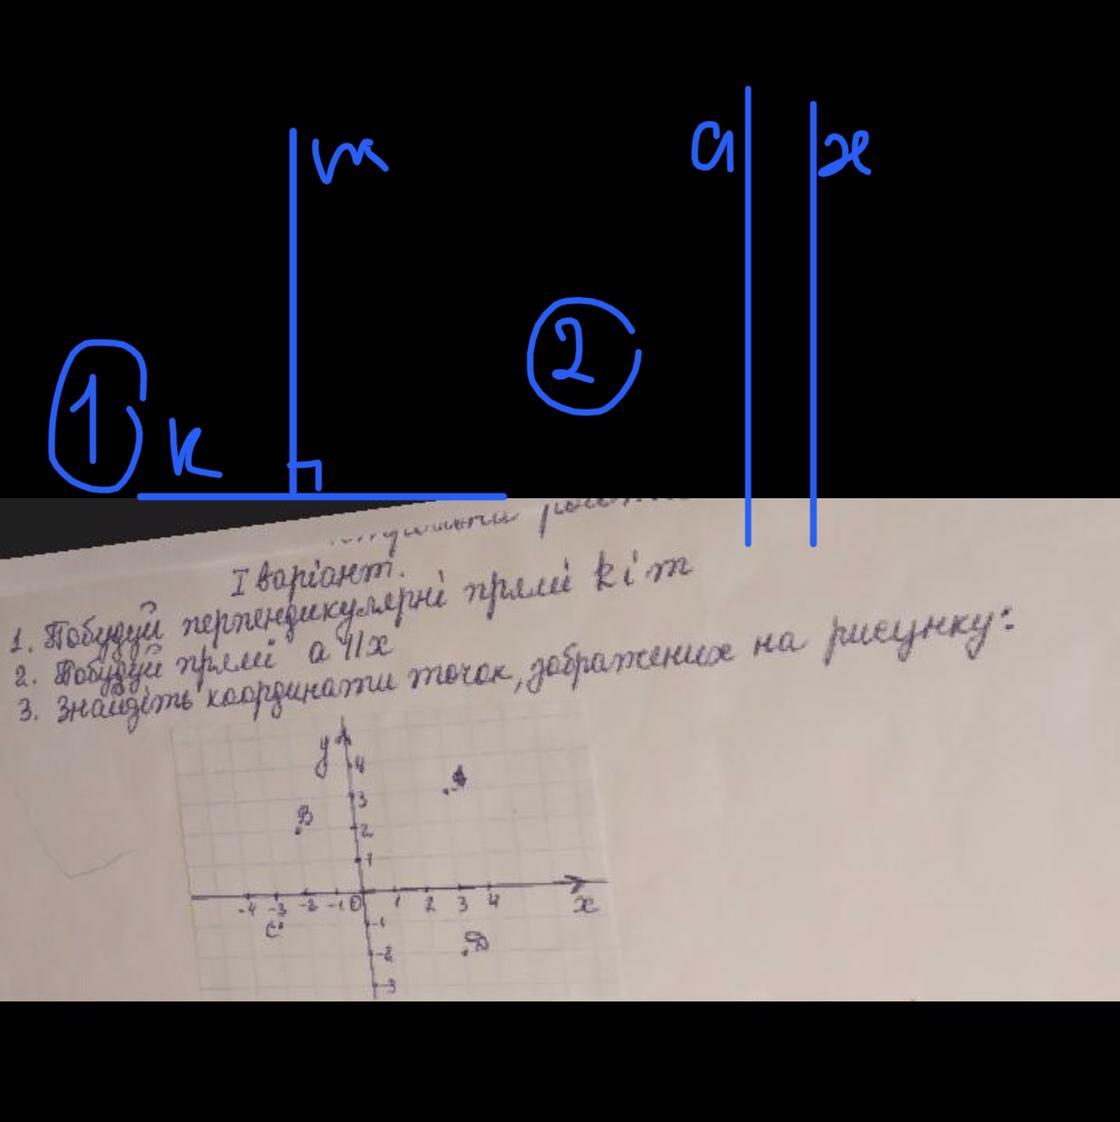 m
a x
1
2
k
I варіант.
1. Побудуй перпендикулярні прямі k і m
2. Побудуй прямі a || x
3. Знайдіть координати точок, зображених на рисунку:
y
4
A
3
B
2
1
-4 -3 -2 -1 0 1 2 3 4
x
C
-1
D
-2
-3